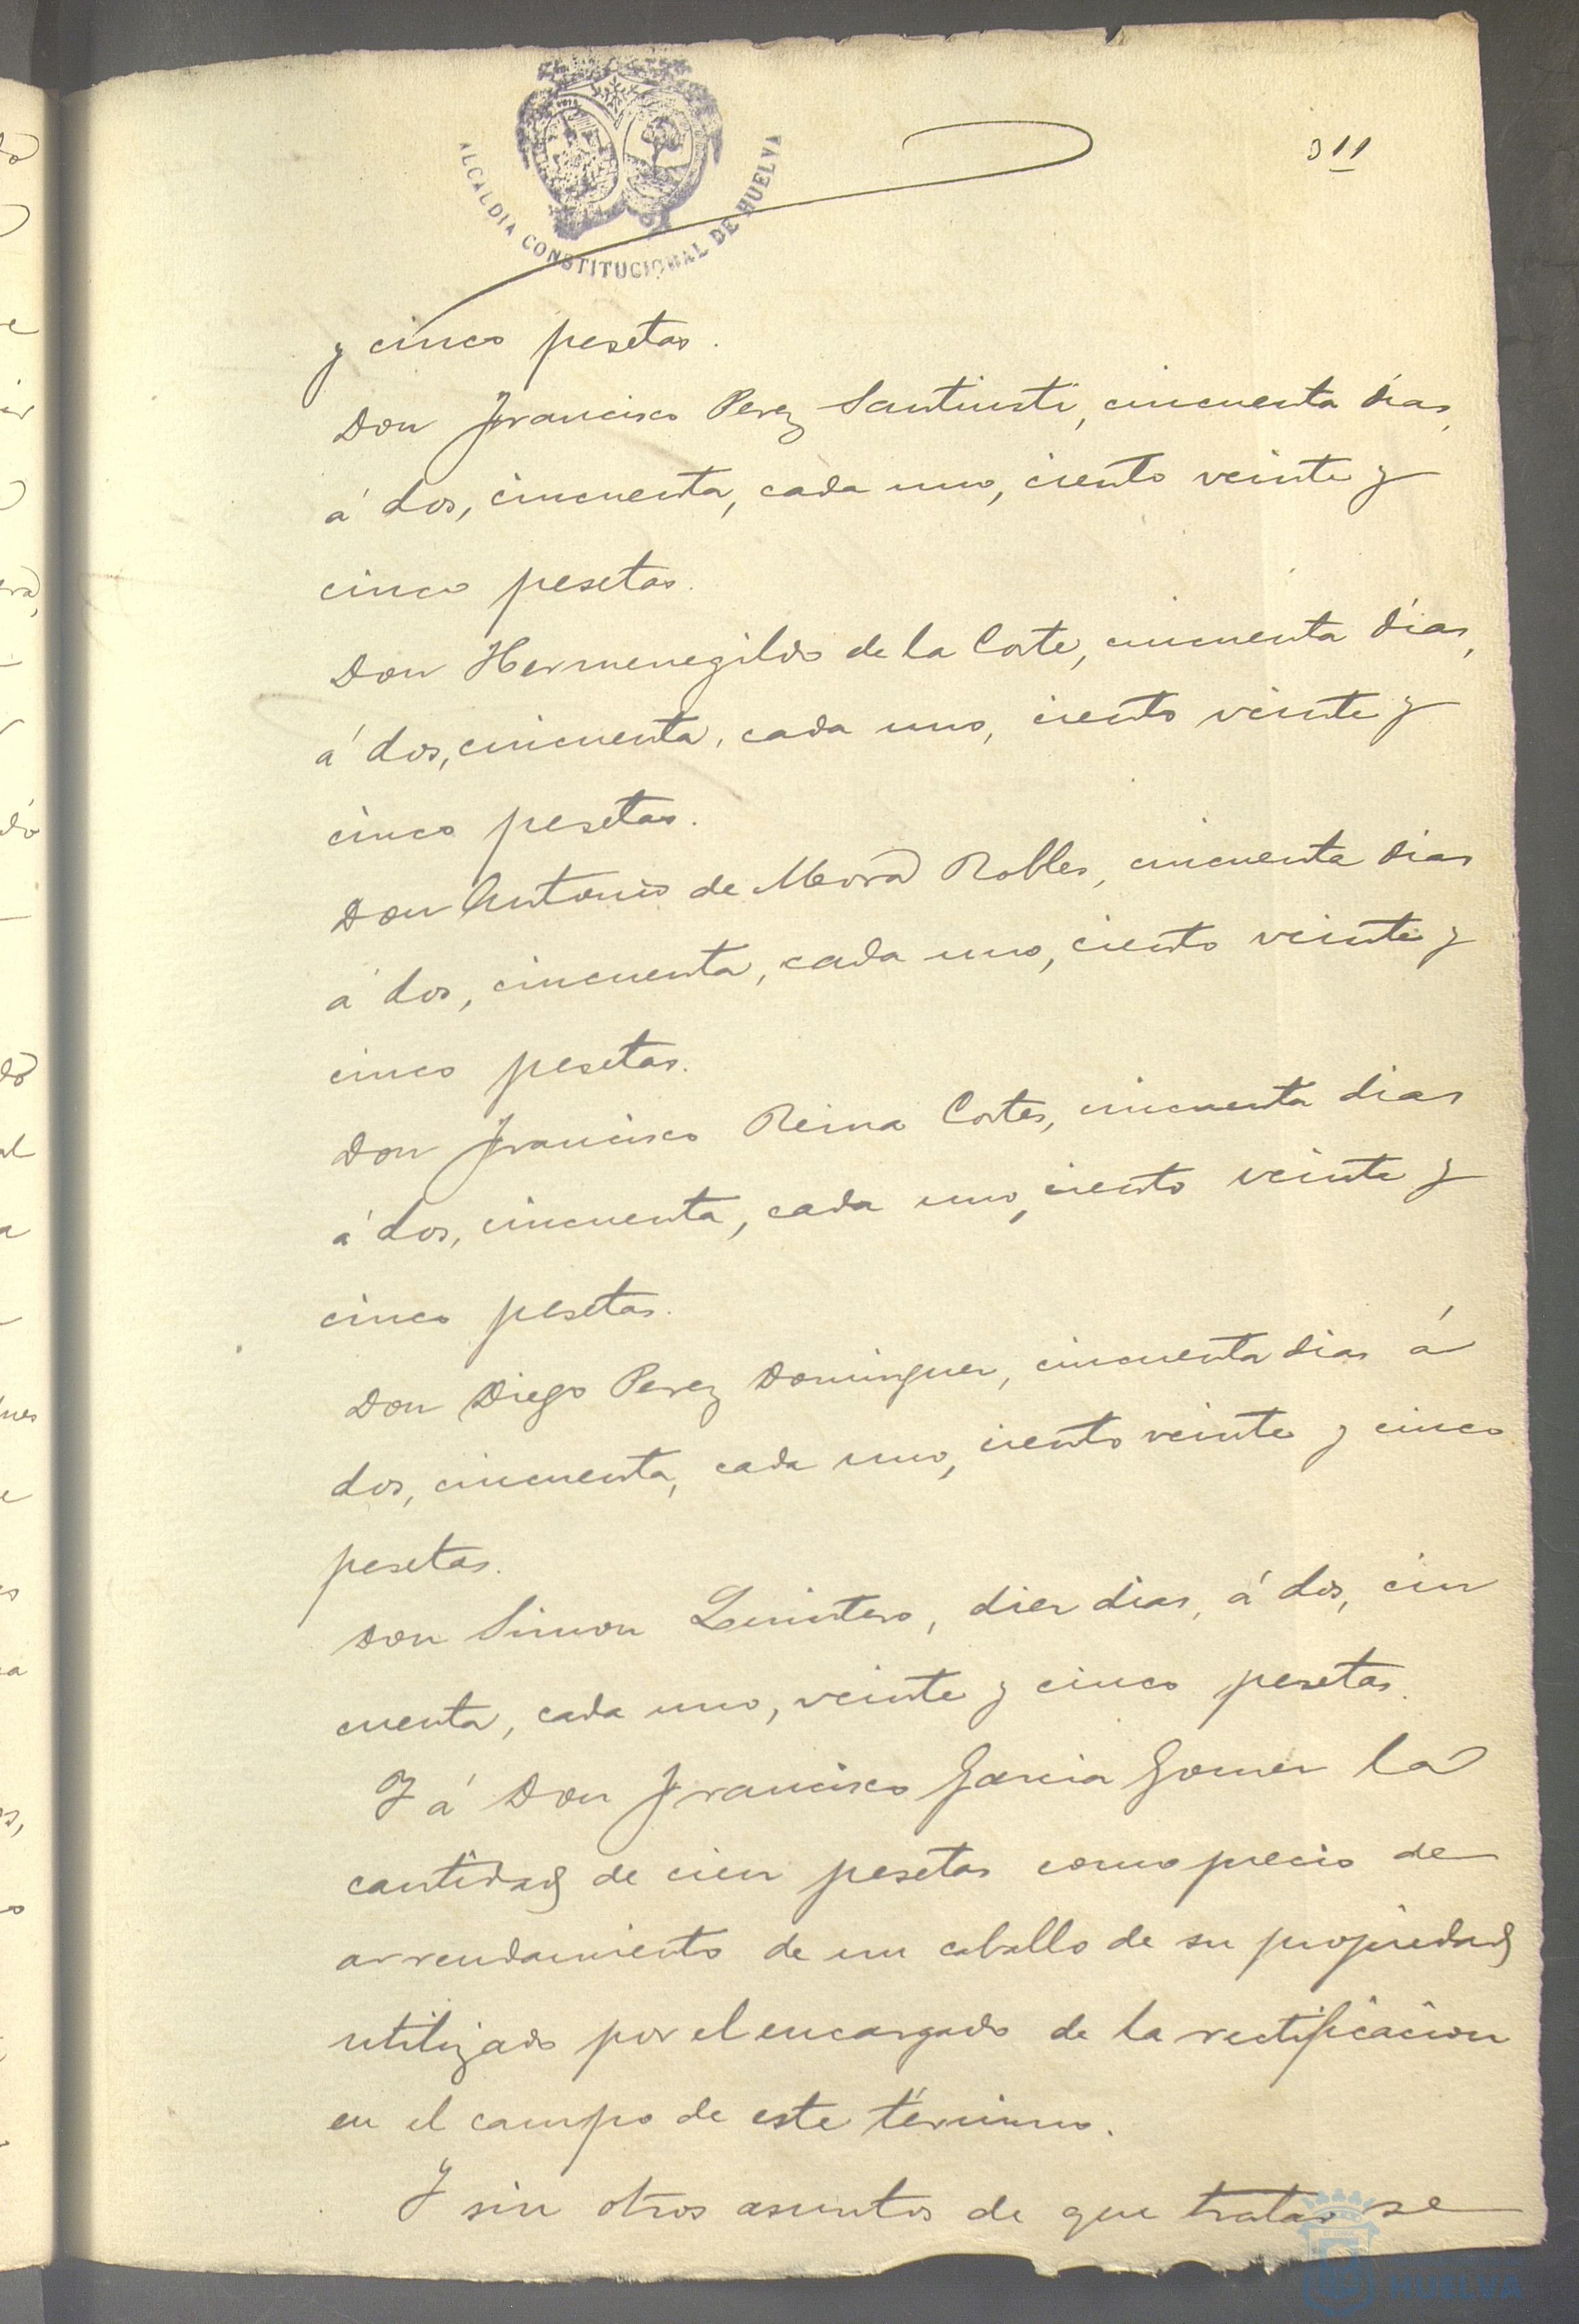 ALCALDIA CONSTITUCIONAL DE HUELVA
311
y cinco pesetas.
Don Francisco Perez Santiusti, cincuenta dias,
á dos, cincuenta, cada uno, ciento veinte y
cinco pesetas.
Don Hermenegildo de la Corte, cincuenta dias,
á dos, cincuenta, cada uno, ciento veinte y
cinco pesetas.
Don Antonio de Mora Robles, cincuenta dias
á dos, cincuenta, cada uno, ciento veinte y
cinco pesetas.
Don Francisco Reina Cortes, cincuenta dias
á dos, cincuenta, cada uno, ciento veinte y
cinco pesetas.
Don Diego Perez Dominguez, cincuenta dias á
dos, cincuenta, cada uno, ciento veinte y cinco
pesetas.
Don Simon Quintero, diez dias, á dos, cin
cuenta, cada uno, veinte y cinco pesetas.
Y á Don Francisco Garcia Gomez la
cantidad de cien pesetas como precio de
arrendamiento de un caballo de su propiedad
utilizado por el encargado de la rectificacion
en el campo de este término.
Y sin otros asuntos de que tratar se
HUELVA